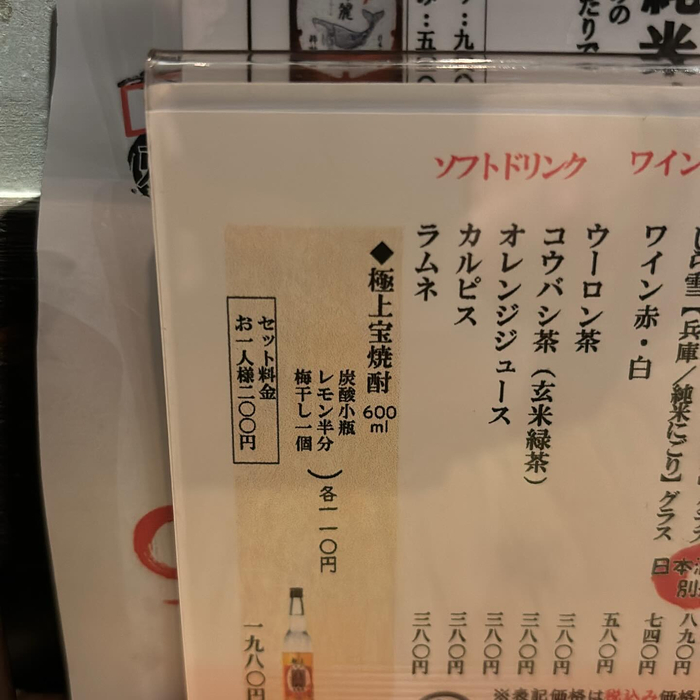 ソフトドリンク
ワイン
しら雪【兵庫/純米にごり】グラス 七四〇円
ワイン赤・白 五八〇円
ウーロン茶 三八〇円
コウバシ茶(玄米緑茶) 三八〇円
オレンジジュース 三八〇円
カルピス 三八〇円
ラムネ 三八〇円
◆極上宝焼酎 600ml 一九八〇円
炭酸小瓶
レモン半分
梅干し一個
各一一〇円
セット料金
お一人様二〇〇円
八九〇円
日本酒
別
※表記価格は税込み価格